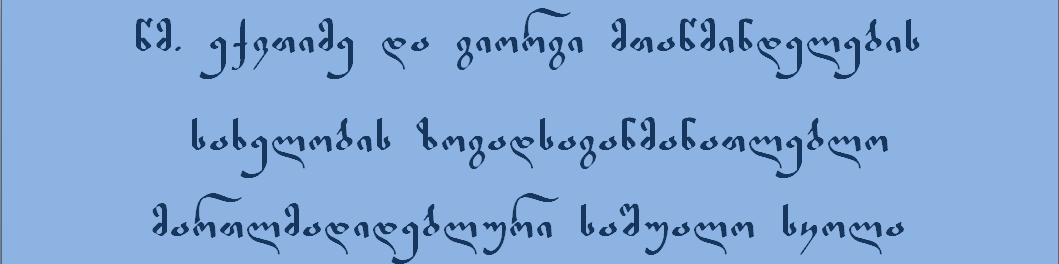 წმ. ექვთიმე და გიორგი მთაწმინდელების
სახელობის ზოგადსაგანმანათლებლო
მართლმადიდებლური საშუალო სკოლა